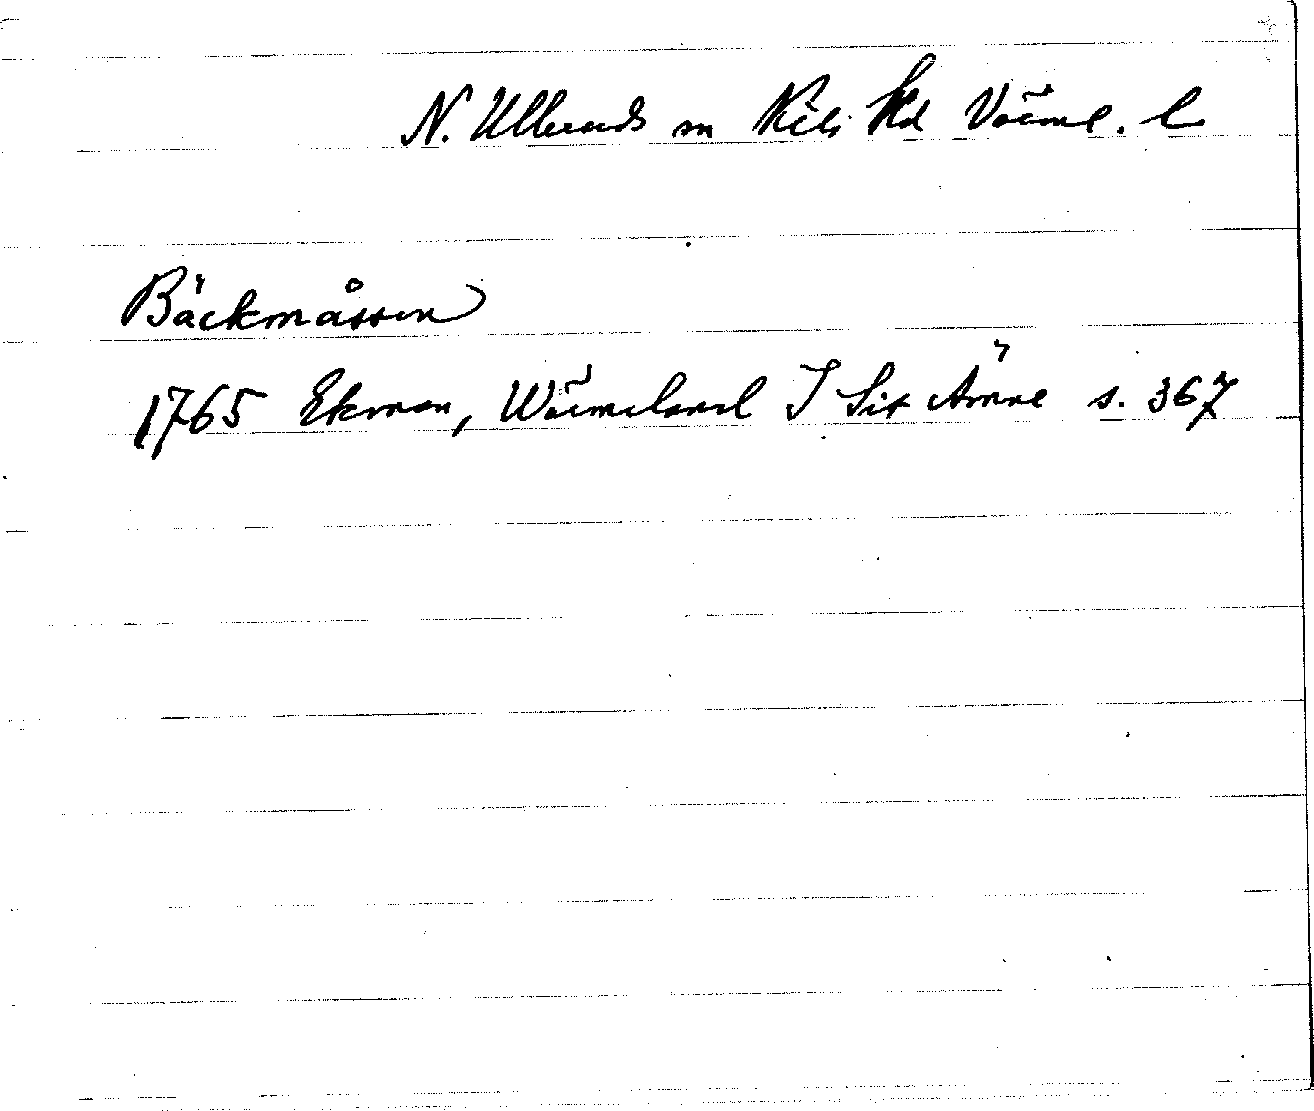 N. Ulleruds sn Kils hd Värml. l
Bäckmåssen
1765 Ekman, Wärmeland I Sit Ämne s. 367